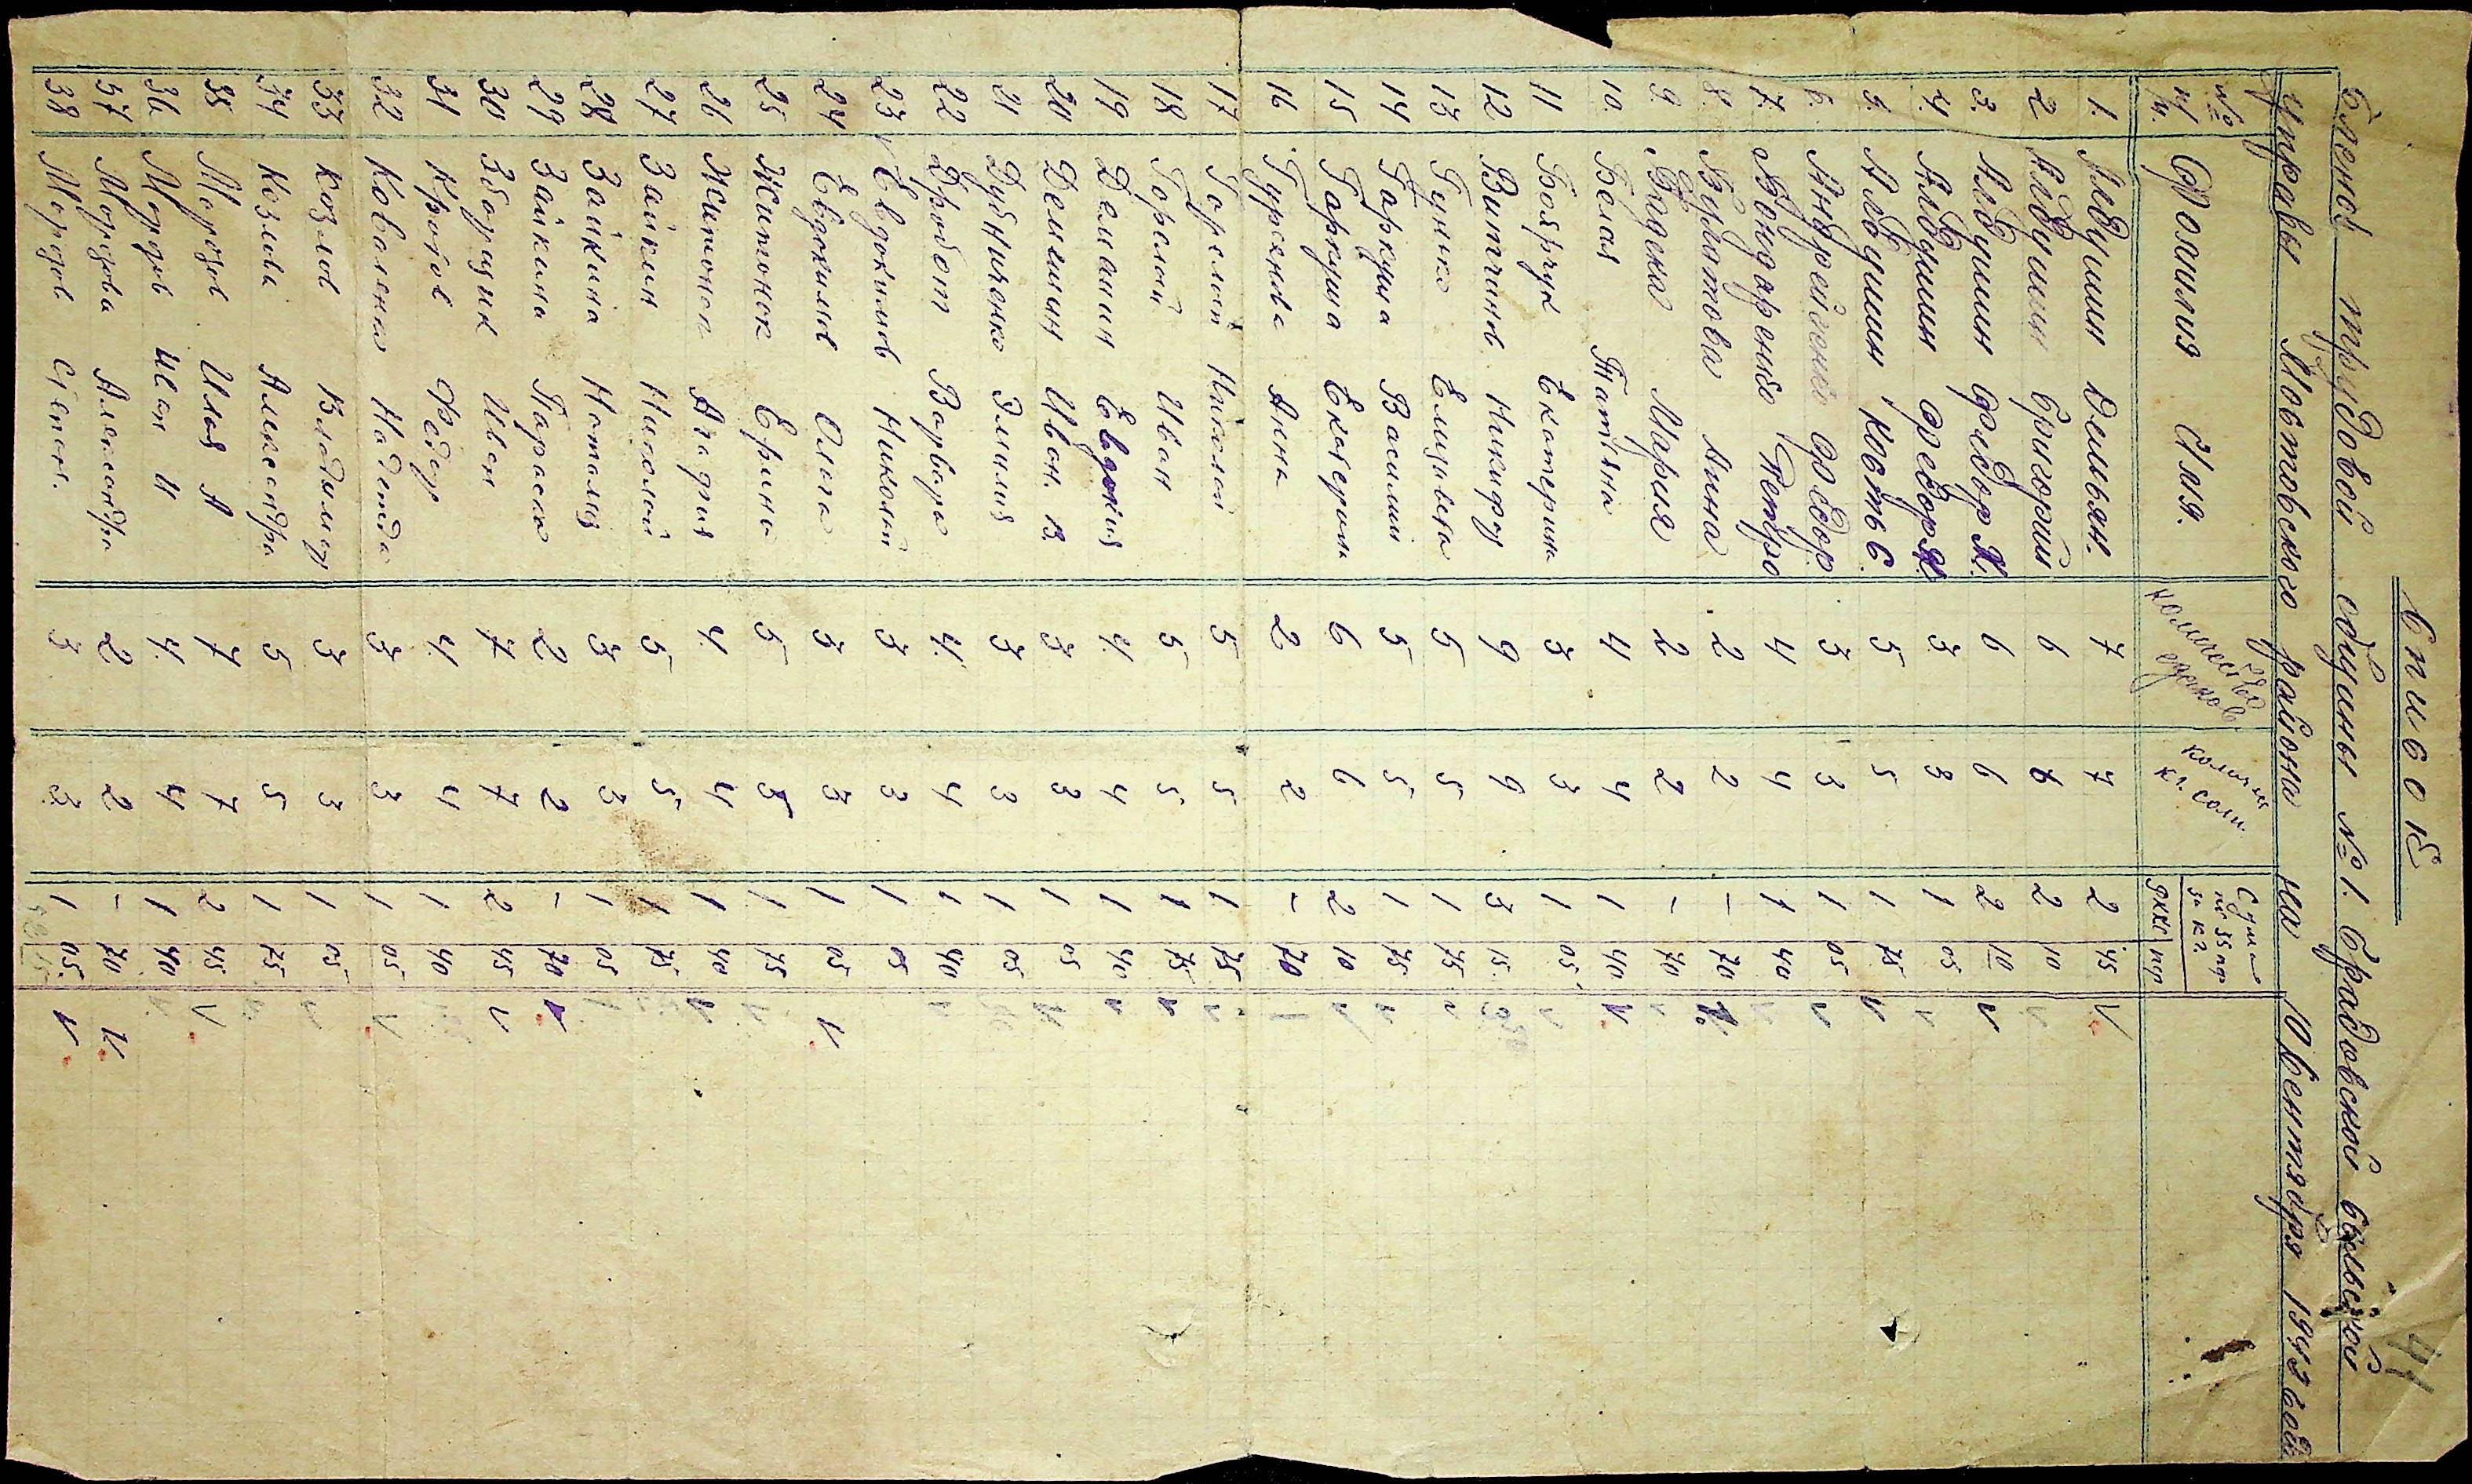 41
Список
Членов трудовой общины № 1. Градовской сельской
управы Мостовского района на 10 сентября 1943 года
№ п/п. Фамилия Имя. Количество едоков Колич. кг. соли. Сума по 35 пф за кг. РККС пф
1. Авдушин Демьян. 7 7 2 45
2 Авдушин Григорий 6 6 2 10
3. Авдушин Федор Я. 6 6 2 10
4. Авдушин Федор Н. 3 3 1 05
5. Авдушин Кость С. 5 5 1 75
6. Андрейченко Федор 3 3 1 05
7. Бондаренко Петро 4 4 1 40
8. Булатова Анна 2 2 - 70
9. Мария 2 2 - 70
10. Белая Татьяна 4 4 1 40
11 Боярчук Екатерина 3 3 1 05
12 Витчинов Никифор 9 9 3 15
13 Гунько Елизавета 5 5 1 75
14 Гаркуша Василий 5 5 1 75
15 Гаркуша Екатерина 6 6 2 10
16 Анна 2 2 - 70
17 Горелой Николай 5 5 1 75
18 Горелой Иван 5 5 1 75
19 Демашин Евдокия 4 4 1 40
20 Демшин Иван В. 3 3 1 05
21 Дубниченко Эмилия 3 3 1 05
22 Дробот Варвара 4 4 1 40
23 Евдокимов Николай 3 3 1 05
24 Евдокимов Ольга 3 3 1 05
25 Житонок Ерина 5 5 1 75
26 Житонок Агафия 4 4 1 40
27 Зайкин Николай 5 5 1 75
28 Зайкина Наталия 3 3 1 05
29 Зайкина Параска 2 2 - 70
30 Зборащук Иван 7 7 2 45
31 Кротов Федор 4 4 1 40
32 Коваленко Надежда 3 3 1 05
33 Козлов Владимир 3 3 1 05
34 Козлова Александра 5 5 1 75
35 Морозов Илья А 7 7 2 45
36 Морозов Иван И 4 4 1 40
37 Морозова Александра 2 2 - 70
38 Морозов Степан. 3 3 1 05